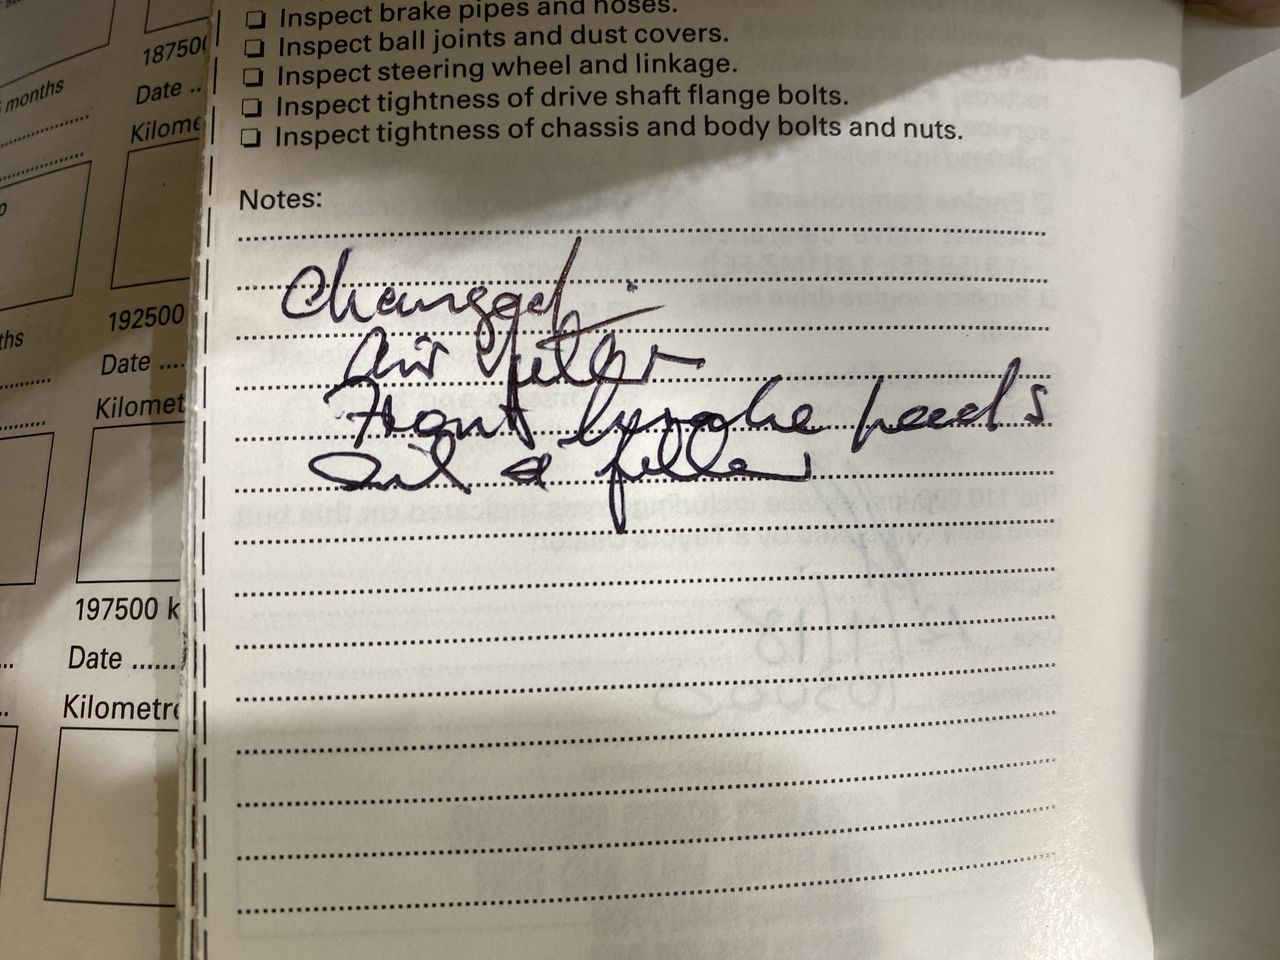 Inspect brake pipes and hoses.
Inspect ball joints and dust covers.
Inspect steering wheel and linkage.
Inspect tightness of drive shaft flange bolts.
Inspect tightness of chassis and body bolts and nuts.
Notes:
Changed :-
Air filter
Front brake pads
Oil & filter
months
187500
Date ..
Kilome
192500
ths
Date ....
Kilomet
197500 k
Date ......
Kilometre